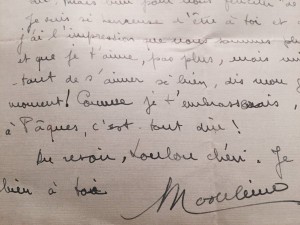 pour nous
Je suis si heureuse d'être à toi et
j'ai l'impression que nous sommes plus
et que je t'aime, pas plus, mais mi
-tant de s'aimer si bien, dis mon
moment! Comme je t'embrasserais,
à Pâques, c'est tout dire!
Au revoir, Loulou chéri. Je
bien à toi
Madeleine